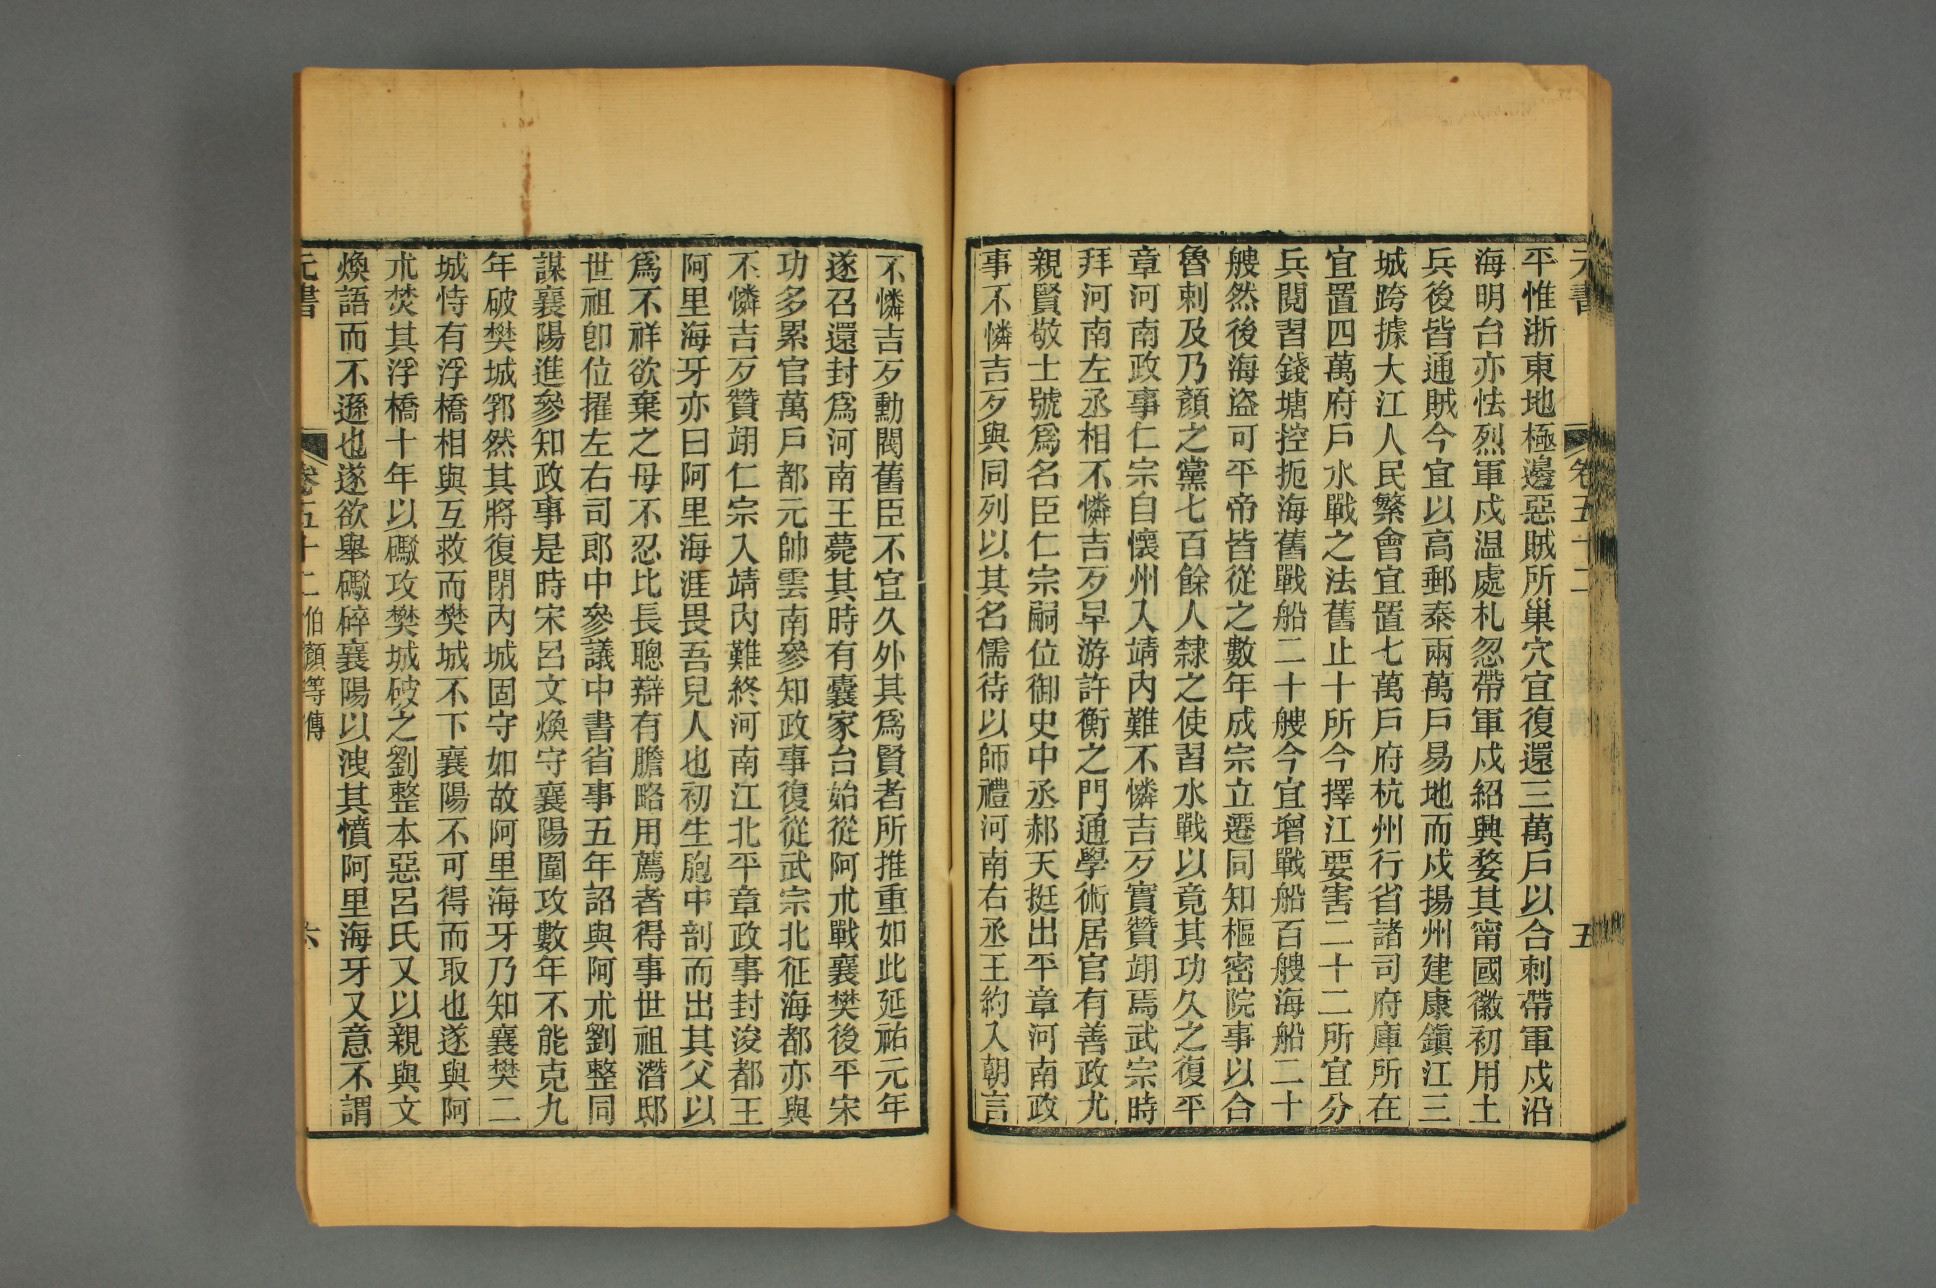 元書 卷五十二 五
平惟浙東地極邊惡賊所巢穴宜復還三萬戶以合剌帶軍戍沿
海明台亦怯烈軍戍温處札忽帶軍戍紹興婺其甯國徽初用土
兵後皆通賊今宜以高郵泰兩萬戶易地而戍揚州建康鎮江三
城跨據大江人民繁會宜置七萬戶府杭州行省諸司府庫所在
宜置四萬府戶水戰之法舊止十所今擇江要害二十二所宜分
兵閱習錢塘控扼海舊戰船二十艘今宜增戰船百艘海船二十
艘然後海盜可平帝皆從之數年成宗立遷同知樞密院事以合
魯剌及乃顏之黨七百餘人隸之使習水戰以竟其功久之復平
章河南政事仁宗自懷州入靖內難不憐吉歹實贊翊焉武宗時
拜河南左丞相不憐吉歹早游許衡之門通學術居官有善政尤
親賢敬士號爲名臣仁宗嗣位御史中丞郝天挺出平章河南政
事不憐吉歹與同列以其名儒待以師禮河南右丞王約入朝言
不憐吉歹勳閥舊臣不宜久外其爲賢者所推重如此延祐元年
遂召還封爲河南王薨其時有囊家台始從阿朮戰襄樊後平宋
功多累官萬戶都元帥雲南參知政事復從武宗北征海都亦與
不憐吉歹贊翊仁宗入靖內難終河南江北平章政事封浚都王
阿里海牙亦曰阿里海涯畏吾兒人也初生胞中剖而出其父以
爲不祥欲棄之母不忍比長聰辯有膽略用薦者得事世祖潛邸
世祖卽位擢左右司郎中參議中書省事五年詔與阿朮劉整同
謀襄陽進參知政事是時宋呂文煥守襄陽圍攻數年不能克九
年破樊城郛然其將復閉內城固守如故阿里海牙乃知襄樊二
城恃有浮橋相與互救而樊城不下襄陽不可得而取也遂與阿
朮焚其浮橋十年以礮攻樊城破之劉整本惡呂氏又以親與文
煥語而不遜也遂欲舉礮碎襄陽以洩其憤阿里海牙又意不謂
元書 卷五十二 伯顏等傳 六